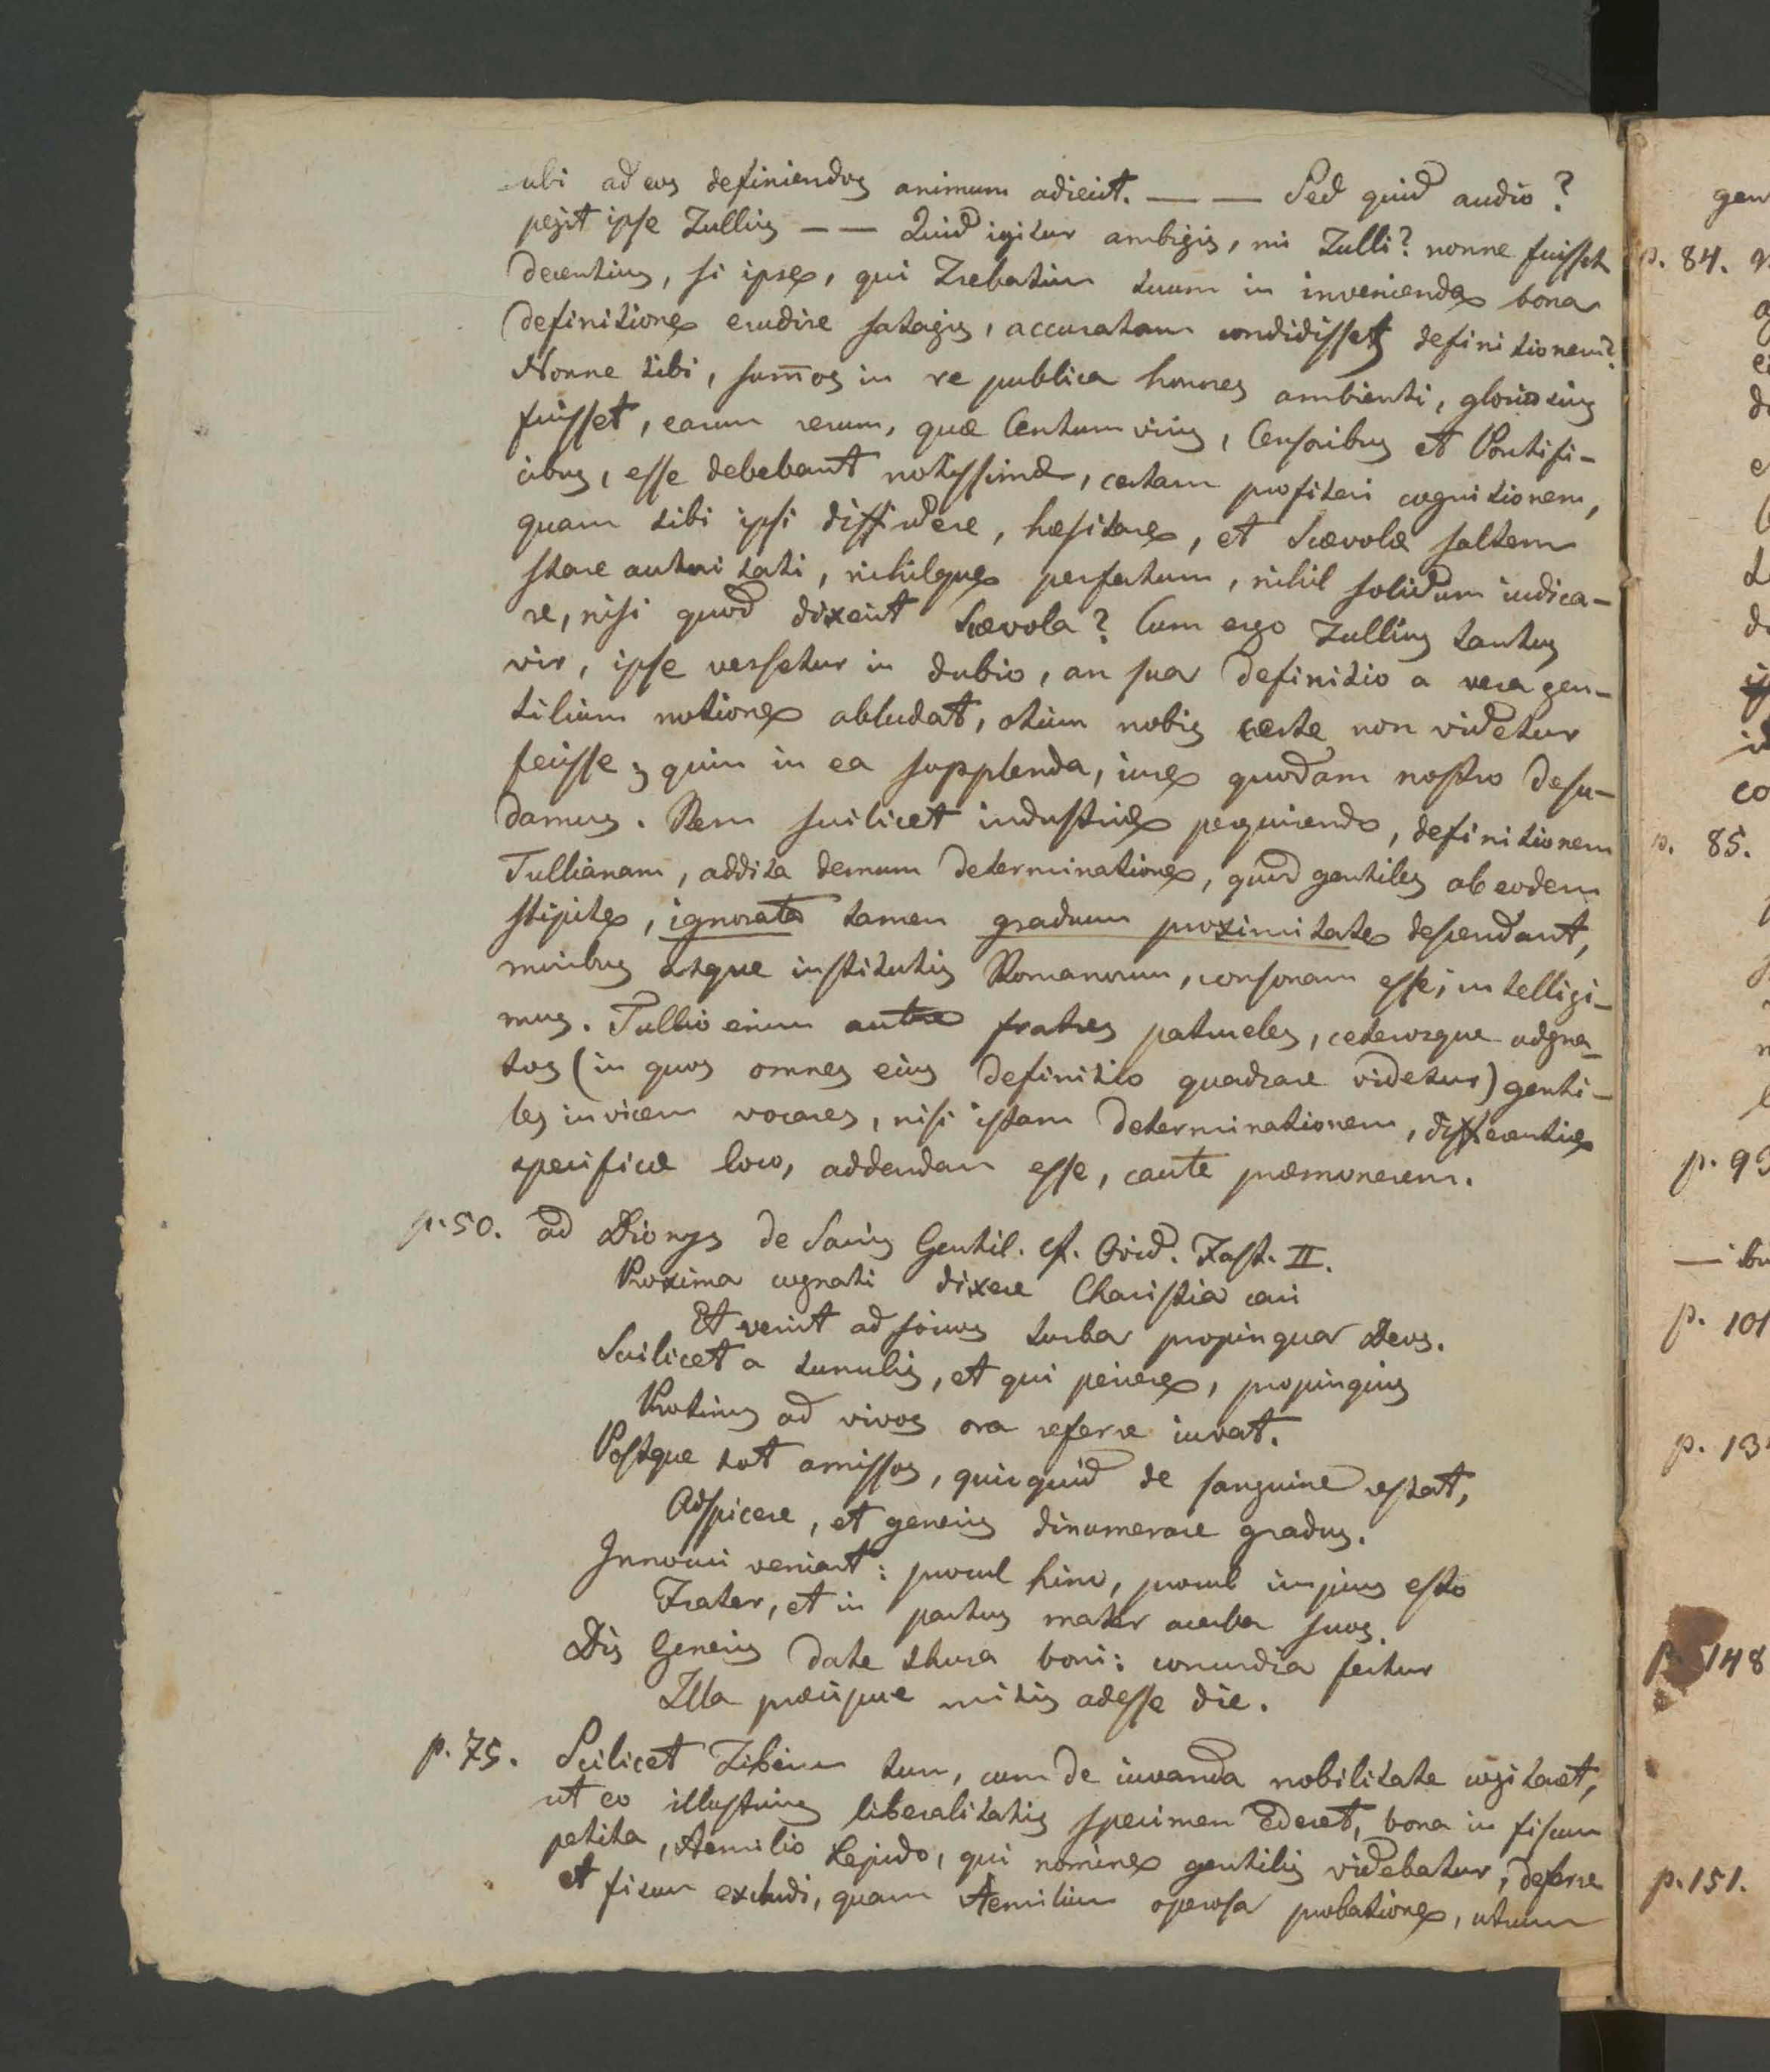 ubi ad eos definiendos animum adiecit. — — Sed quid audio?
pegit ipse Tullius — — Quid igitur ambigis, mi Tulli? nonne fuisset
decentius, si ipse, qui Trebatium tuum in invenienda bona
definitione erudire satagis, accuratam condidisses definitionem?
Nonne tibi, sum̅os in re publica honores ambienti, gloriosius
fuisset, earum rerum, quæ Centumviris, Censoribus et Pontifi-
cibus, esse debebant notissimæ, certam profiteri cognitionem,
quam tibi ipsi diffidere, hæsitare, et Scævolæ saltem
stare autoritati, nihilque perfectum, nihil solidum iudica-
re, nisi quod dixerit Scævola? Cum ergo Tullius tantus
vir, ipse versetur in dubio, an sua definitio a vera gen-
tilium notione abludat, otium nobis certe non videtur
fecisse, quin in ea supplenda, iure quodam nostro desu-
damus. Rem scilicet industrie perquirendo, definitionem
Tullianam, addita demum determinatione, quod gentiles ab eodem
stipite, ignorata tamen graduum proximitate descendant,
moribus atque institutis Romanorum, consonam esse, intelligi-
mus. Tullio enim autore fratres patrueles, ceterosque adgna-
tos (in quos omnes eius definitio quadrare videtur) genti-
les invicem vocares, nisi istam determinationem, differentiæ
specificæ loco, addendam esse, caute præmonerem.
p. 50. ad Dionys de Sacris Gentil. cf. Ovid. Fast. II.
Proxima cognati dixere Charistia cari
Et venit ad socios turba propinqua Deos.
Scilicet a tumulis, et qui periere, propinquis
Protinus ad vivos ora referre iuvat.
Postque tot amissos, quicquid de sanguine restat,
Adspicere, et generis dinumerare gradus.
Innocui veniant: procul hinc, procul impius esto
Frater, et in partus mater acerba suos.
Dis Generis date thura boni: concordia fertur
Illa præcipue mitis adesse die.
p. 75. Scilicet Tiberium tum, cum de iuvanda nobilitate cogitaret,
ut eo illustrius liberalitatis specimen ederet, bona in fiscum
petita, Aemilio Lepido, qui nomine gentilis videbatur, deferre
et fiscum excludi, quam Aemilium operosa probatione, utrum
gen
p. 84.
p. 85.
p. 93
p. 101
p. 13
p. 148
p. 151.